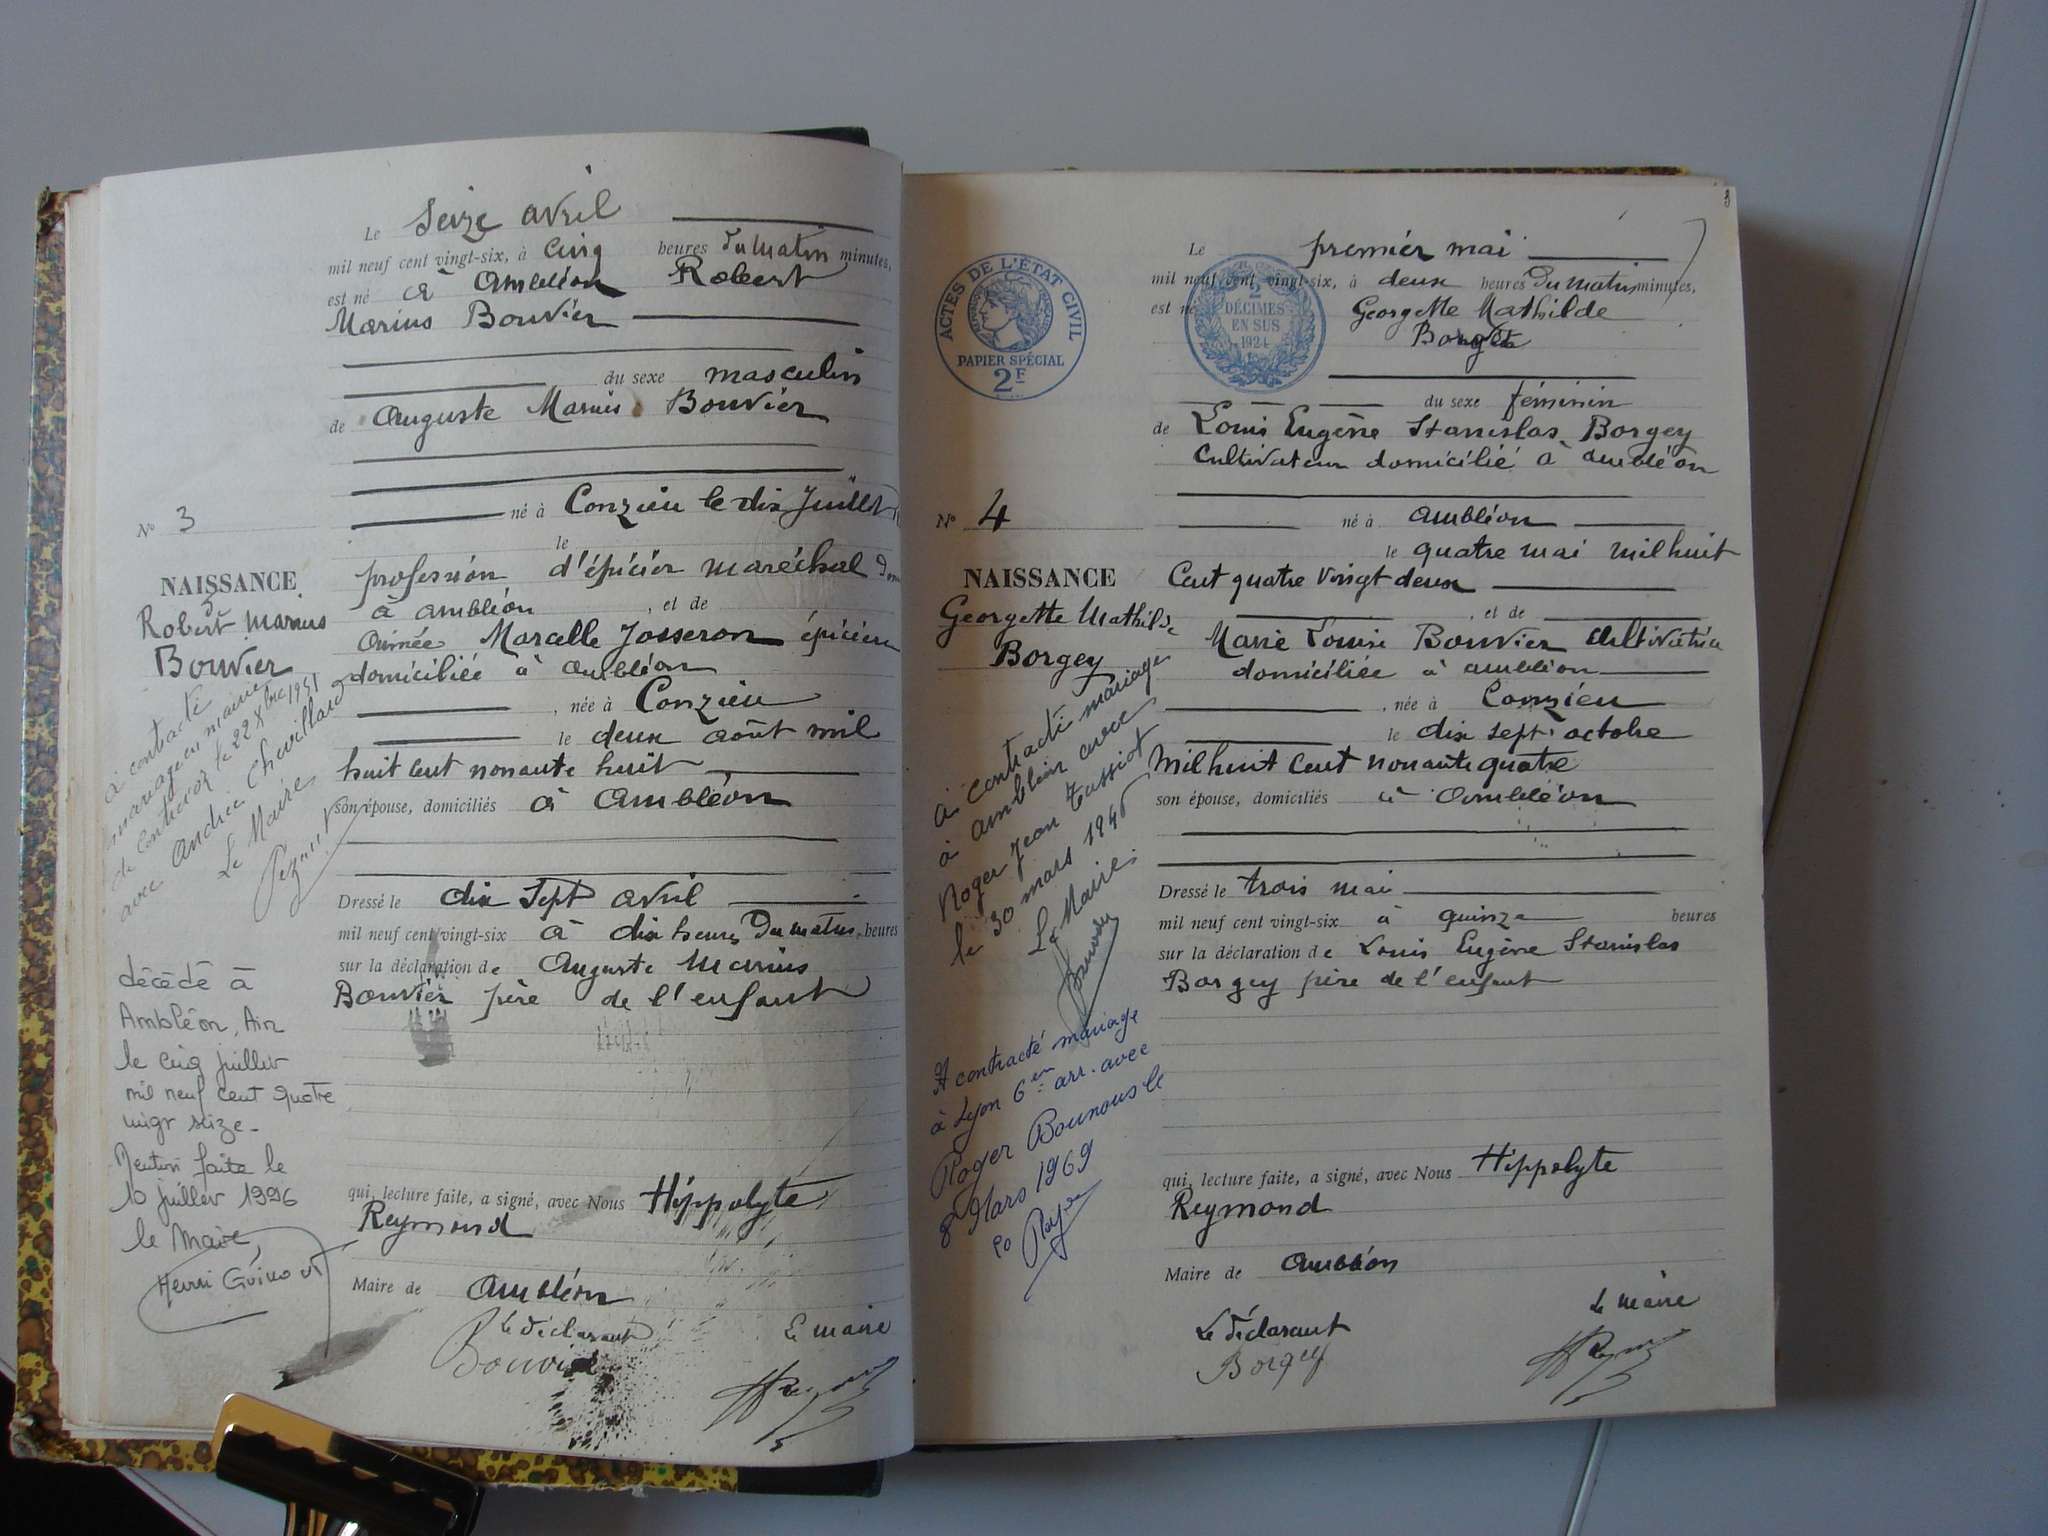 Le seize avril
mil neuf cent vingt-six, à cinq heures du matin minutes,
est né à Ambléon Robert
Marius Bouvier
du sexe masculin
de Auguste Marius Bouvier
né à Conzieu le dix Juillet
le
profession d'épicier maréchal
à Ambléon, et de
Aimée Marcelle Josseron épicière
domiciliée à Ambléon
, née à Conzieu
le deux août mil
huit cent nonante huit
son épouse, domiciliés à Ambléon
Dressé le dix sept avril
mil neuf cent vingt-six à dix heures du matin heures
sur la déclaration de Auguste Marius
Bouvier père de l'enfant
qui, lecture faite, a signé, avec Nous Hippolyte
Reymond
Maire de Ambléon
Le déclarant
Le maire
Bouvier
No 3
NAISSANCE
Robert Marius
Bouvier
a contracté
mariage en mairie
de le 22 Xbre 1951
avec Andrée Chevillard
Le Maire
décédé à
Ambléon, Ain
le cinq juillet
mil neuf cent quatre
vingt seize.
Mention faite le
10 juillet 1996
le Maire,
Henri
3
ACTES DE L'ÉTAT CIVIL
PAPIER SPÉCIAL
2F
2
DÉCIMES
EN SUS
1924
Le premier mai
mil neuf cent vingt-six, à deux heures du matin minutes,
est né Georgette Mathilde
du sexe féminin
de Louis Eugène Stanislas Borgey
Cultivateur domicilié à Ambléon
né à Ambléon
le quatre mai mil huit
cent quatre vingt deux
, et de
Marie Louise Bouvier cultivatrice
domiciliée à Ambléon
, née à Conzieu
le dix sept octobre
mil huit cent nonante quatre
son épouse, domiciliés à Ambléon
Dressé le trois mai
mil neuf cent vingt-six à quinze heures
sur la déclaration de Louis Eugène Stanislas
Borgey père de l'enfant
qui, lecture faite, a signé, avec Nous Hippolyte
Reymond
Maire de Ambléon
Le maire
Le déclarant
Borgey
No 4
NAISSANCE
Georgette Mathilde
Borgey
a contracté mariage
à Ambléon avec
Roger Jean Tassiot
le 30 mars 1946
Le Maire
A contracté mariage
à Lyon 6en arr. avec
Roger Bounous le
8 Mars 1969